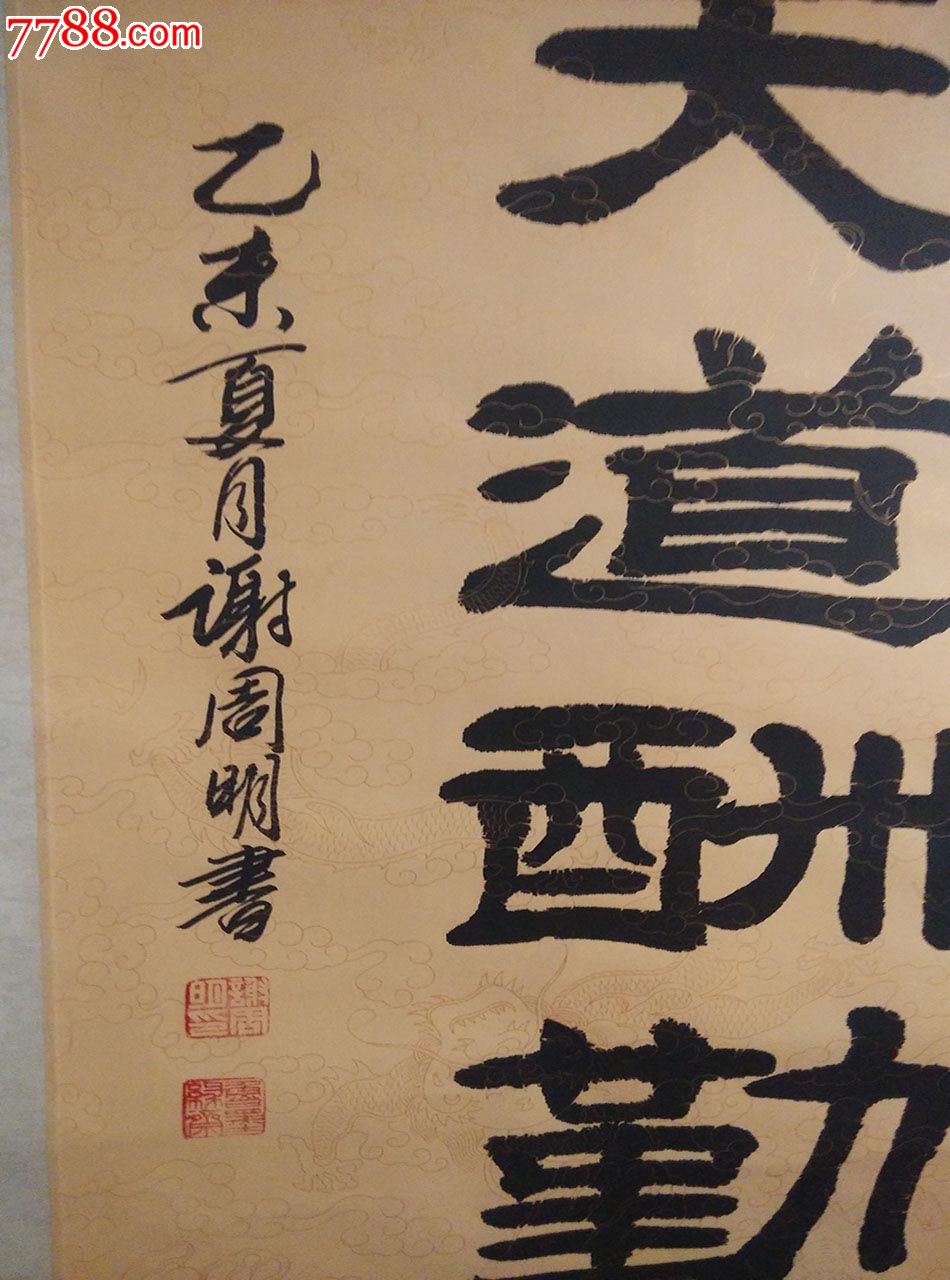 7788.com
天道酬勤
乙未夏月谢周明書
謝周明印